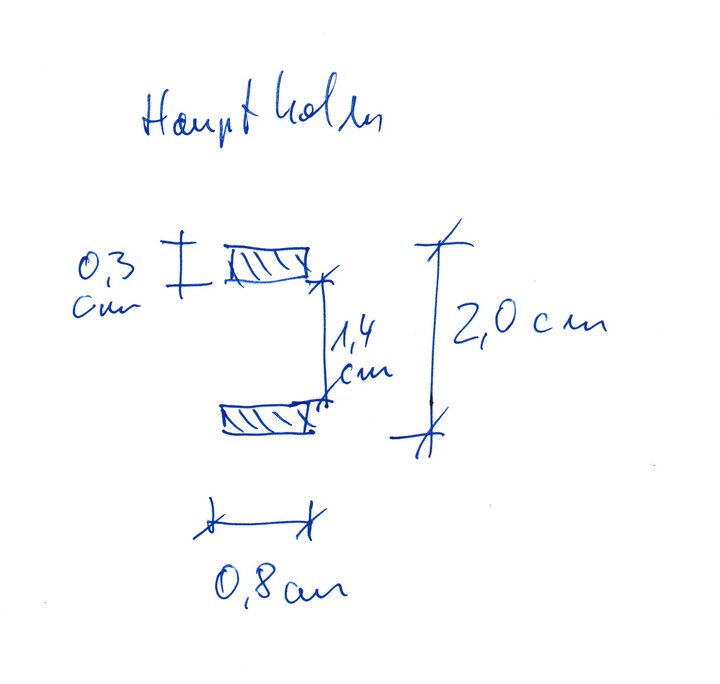 Hauptholm
0,3
cm
1,4
cm
2,0 cm
0,8 cm